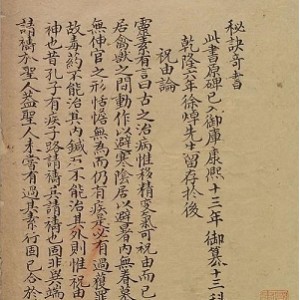 秘訣奇書
此書原碑已入御庫康熙十三年御纂十三科
乾隆六年徐焯先生留存於後
祝由論
靈素有言曰古之治病惟移精変氣可祝由而已
居禽獸之間動作以避寒陰居以避暑內無眷慕
無伸官之形恬憺無為而仍有疾是必有過獲罪
故毒药不能治其內鍼石不能治其外則惟祝由
神也昔孔子有疾子路請禱其請禱也固非異端
請禱於聖人蓋聖人未嘗有過其素行固已合於